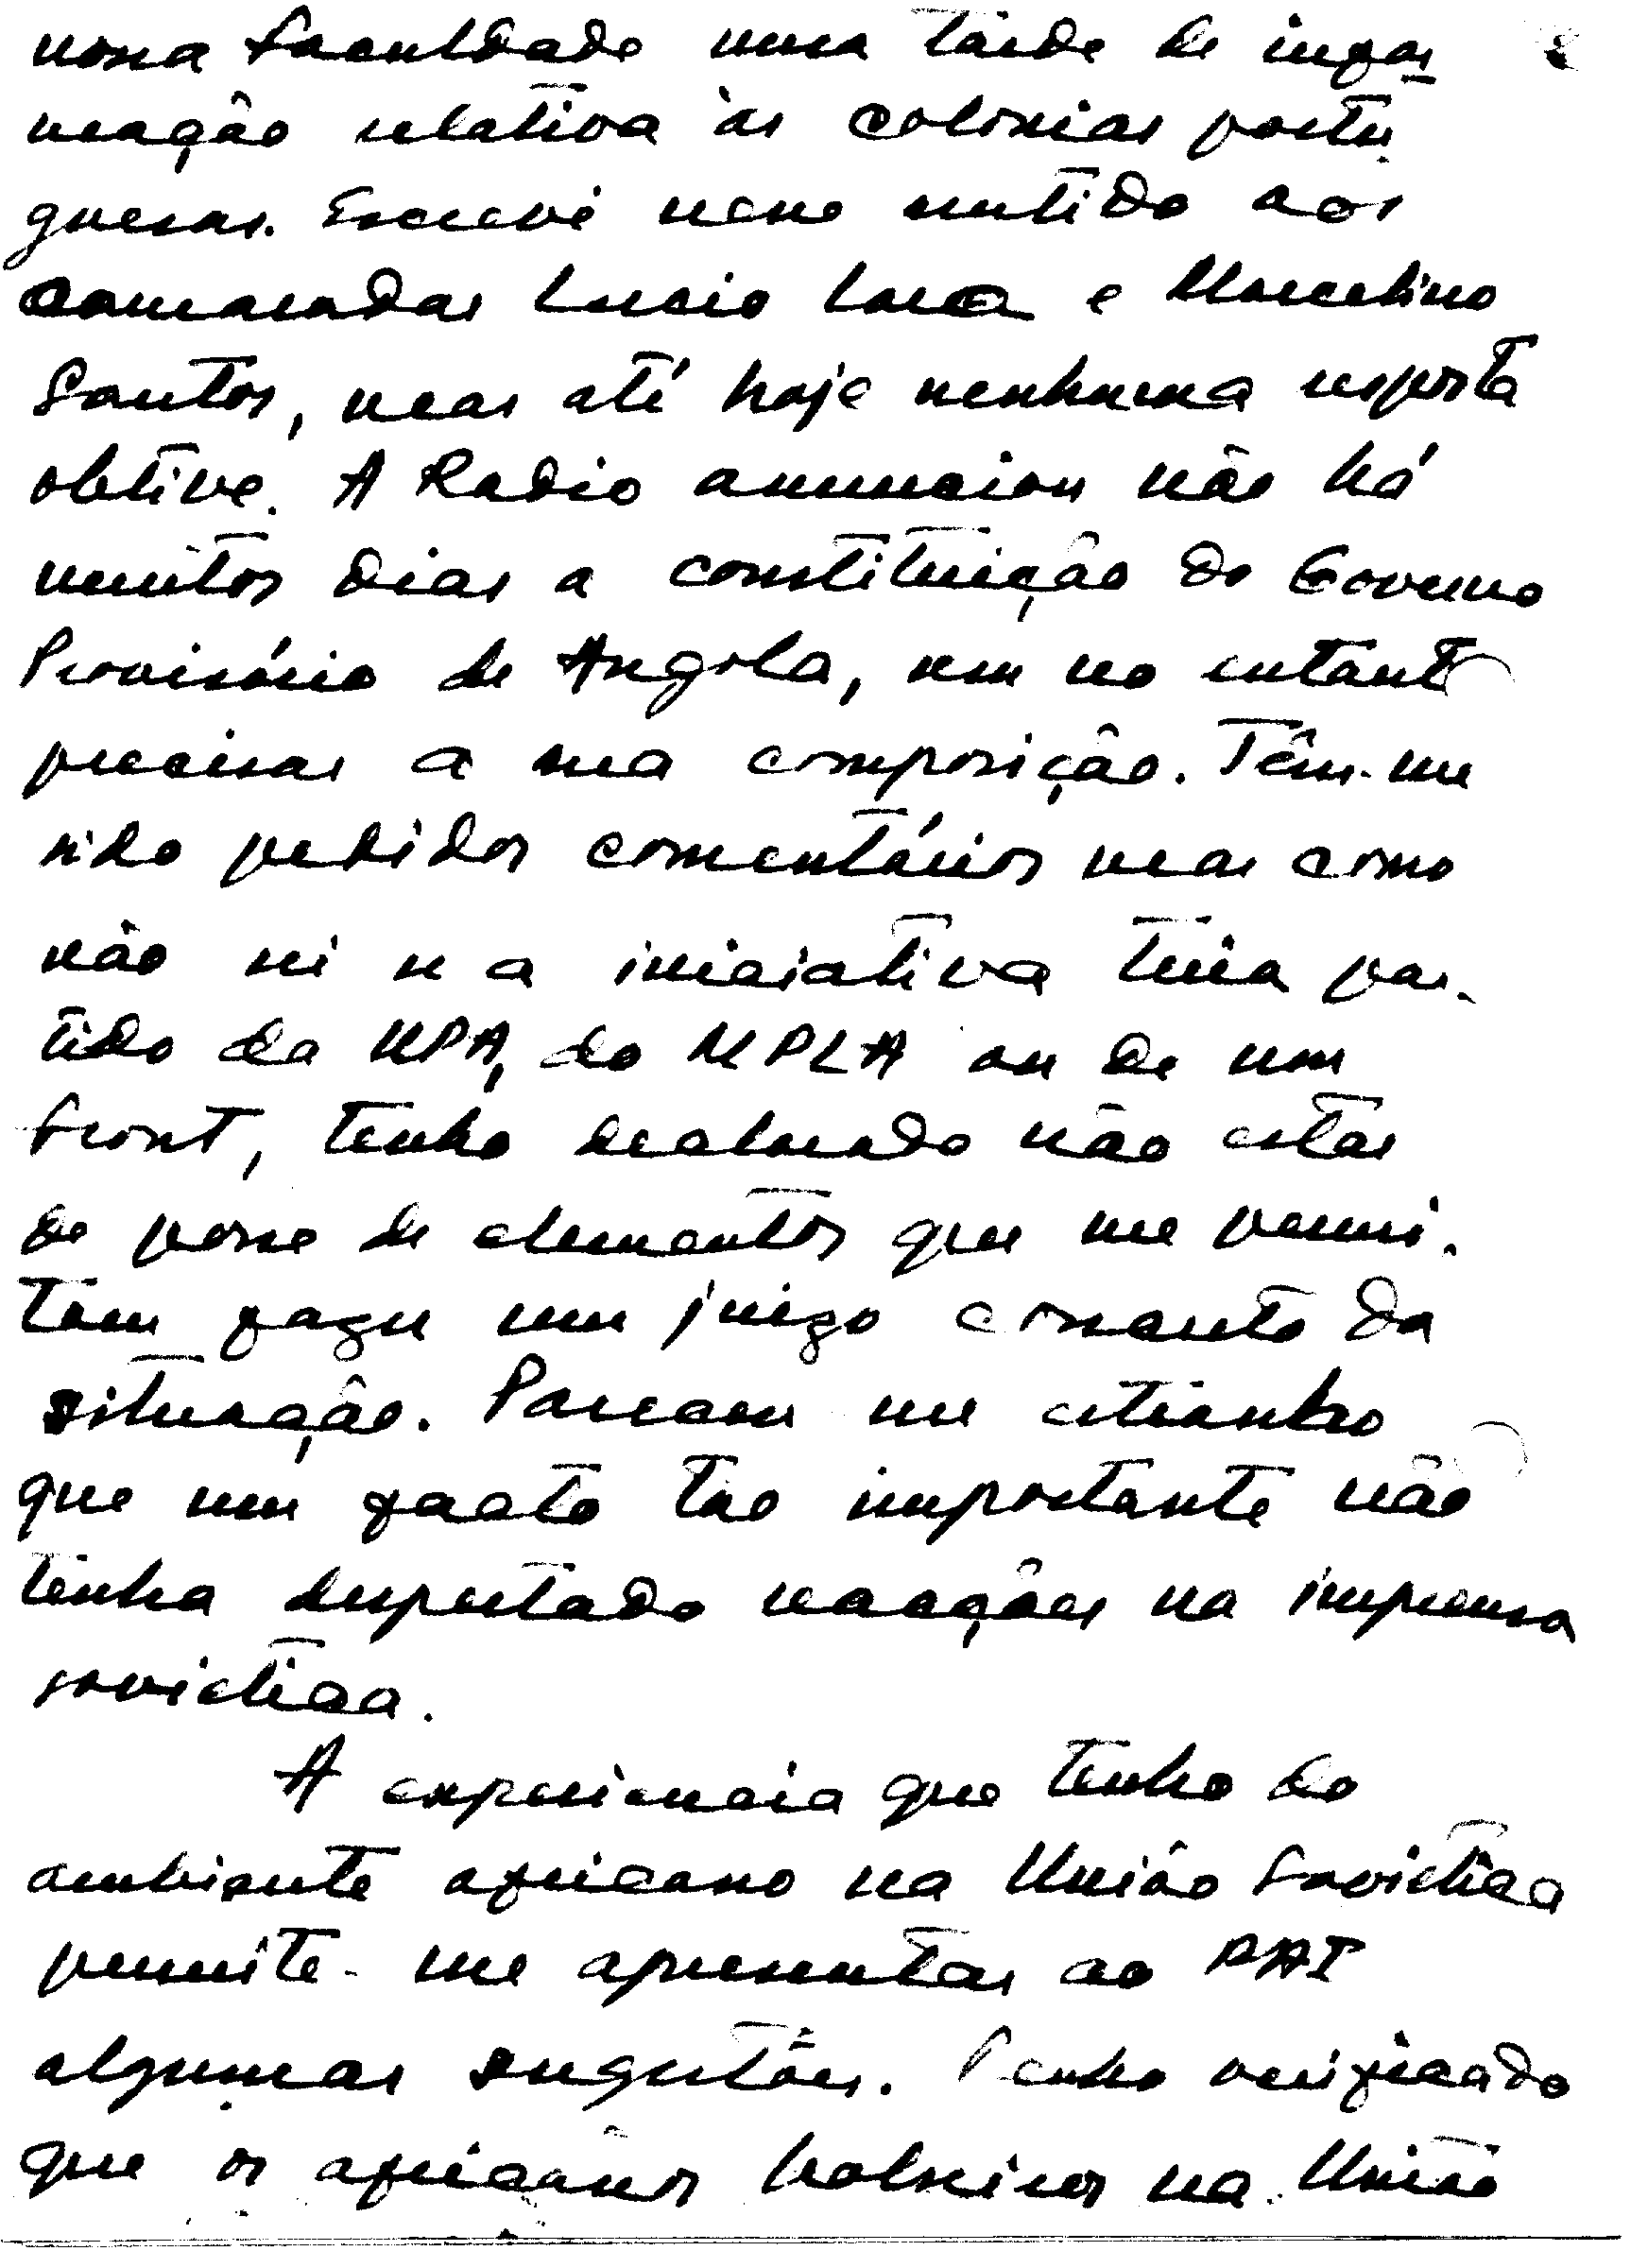 nossa Faculdade uma tarde de infor
mação relativa às colonias portu
guesas. Escrevi nesse sentido aos
camaradas Lucio Lara e Marcelino
Santos, mas até hoje nenhuma resposta
obtive. A Radio anunciou não há
muitos dias a constituição do Governo
Provisório de Angola, sem no entanto
precisar a sua composição. Têm-me
sido pedidos comentários mas como
não sei se a iniciativa teria par-
tido da UPA, do MPLA ou de um
Front, tenho declarado não estar
de posse de elementos que me permi-
tam fazer um juizo concreto da
situação. Pareceu-me estranho
que um facto tão importante não
tenha despertado reacções na imprensa
sovietica.
A experiencia que tenho do
ambiente africano na União Sovietica
permite-me apresentar ao PAI
algumas sugestões. Tenho verificado
que os africanos bolseiros na União